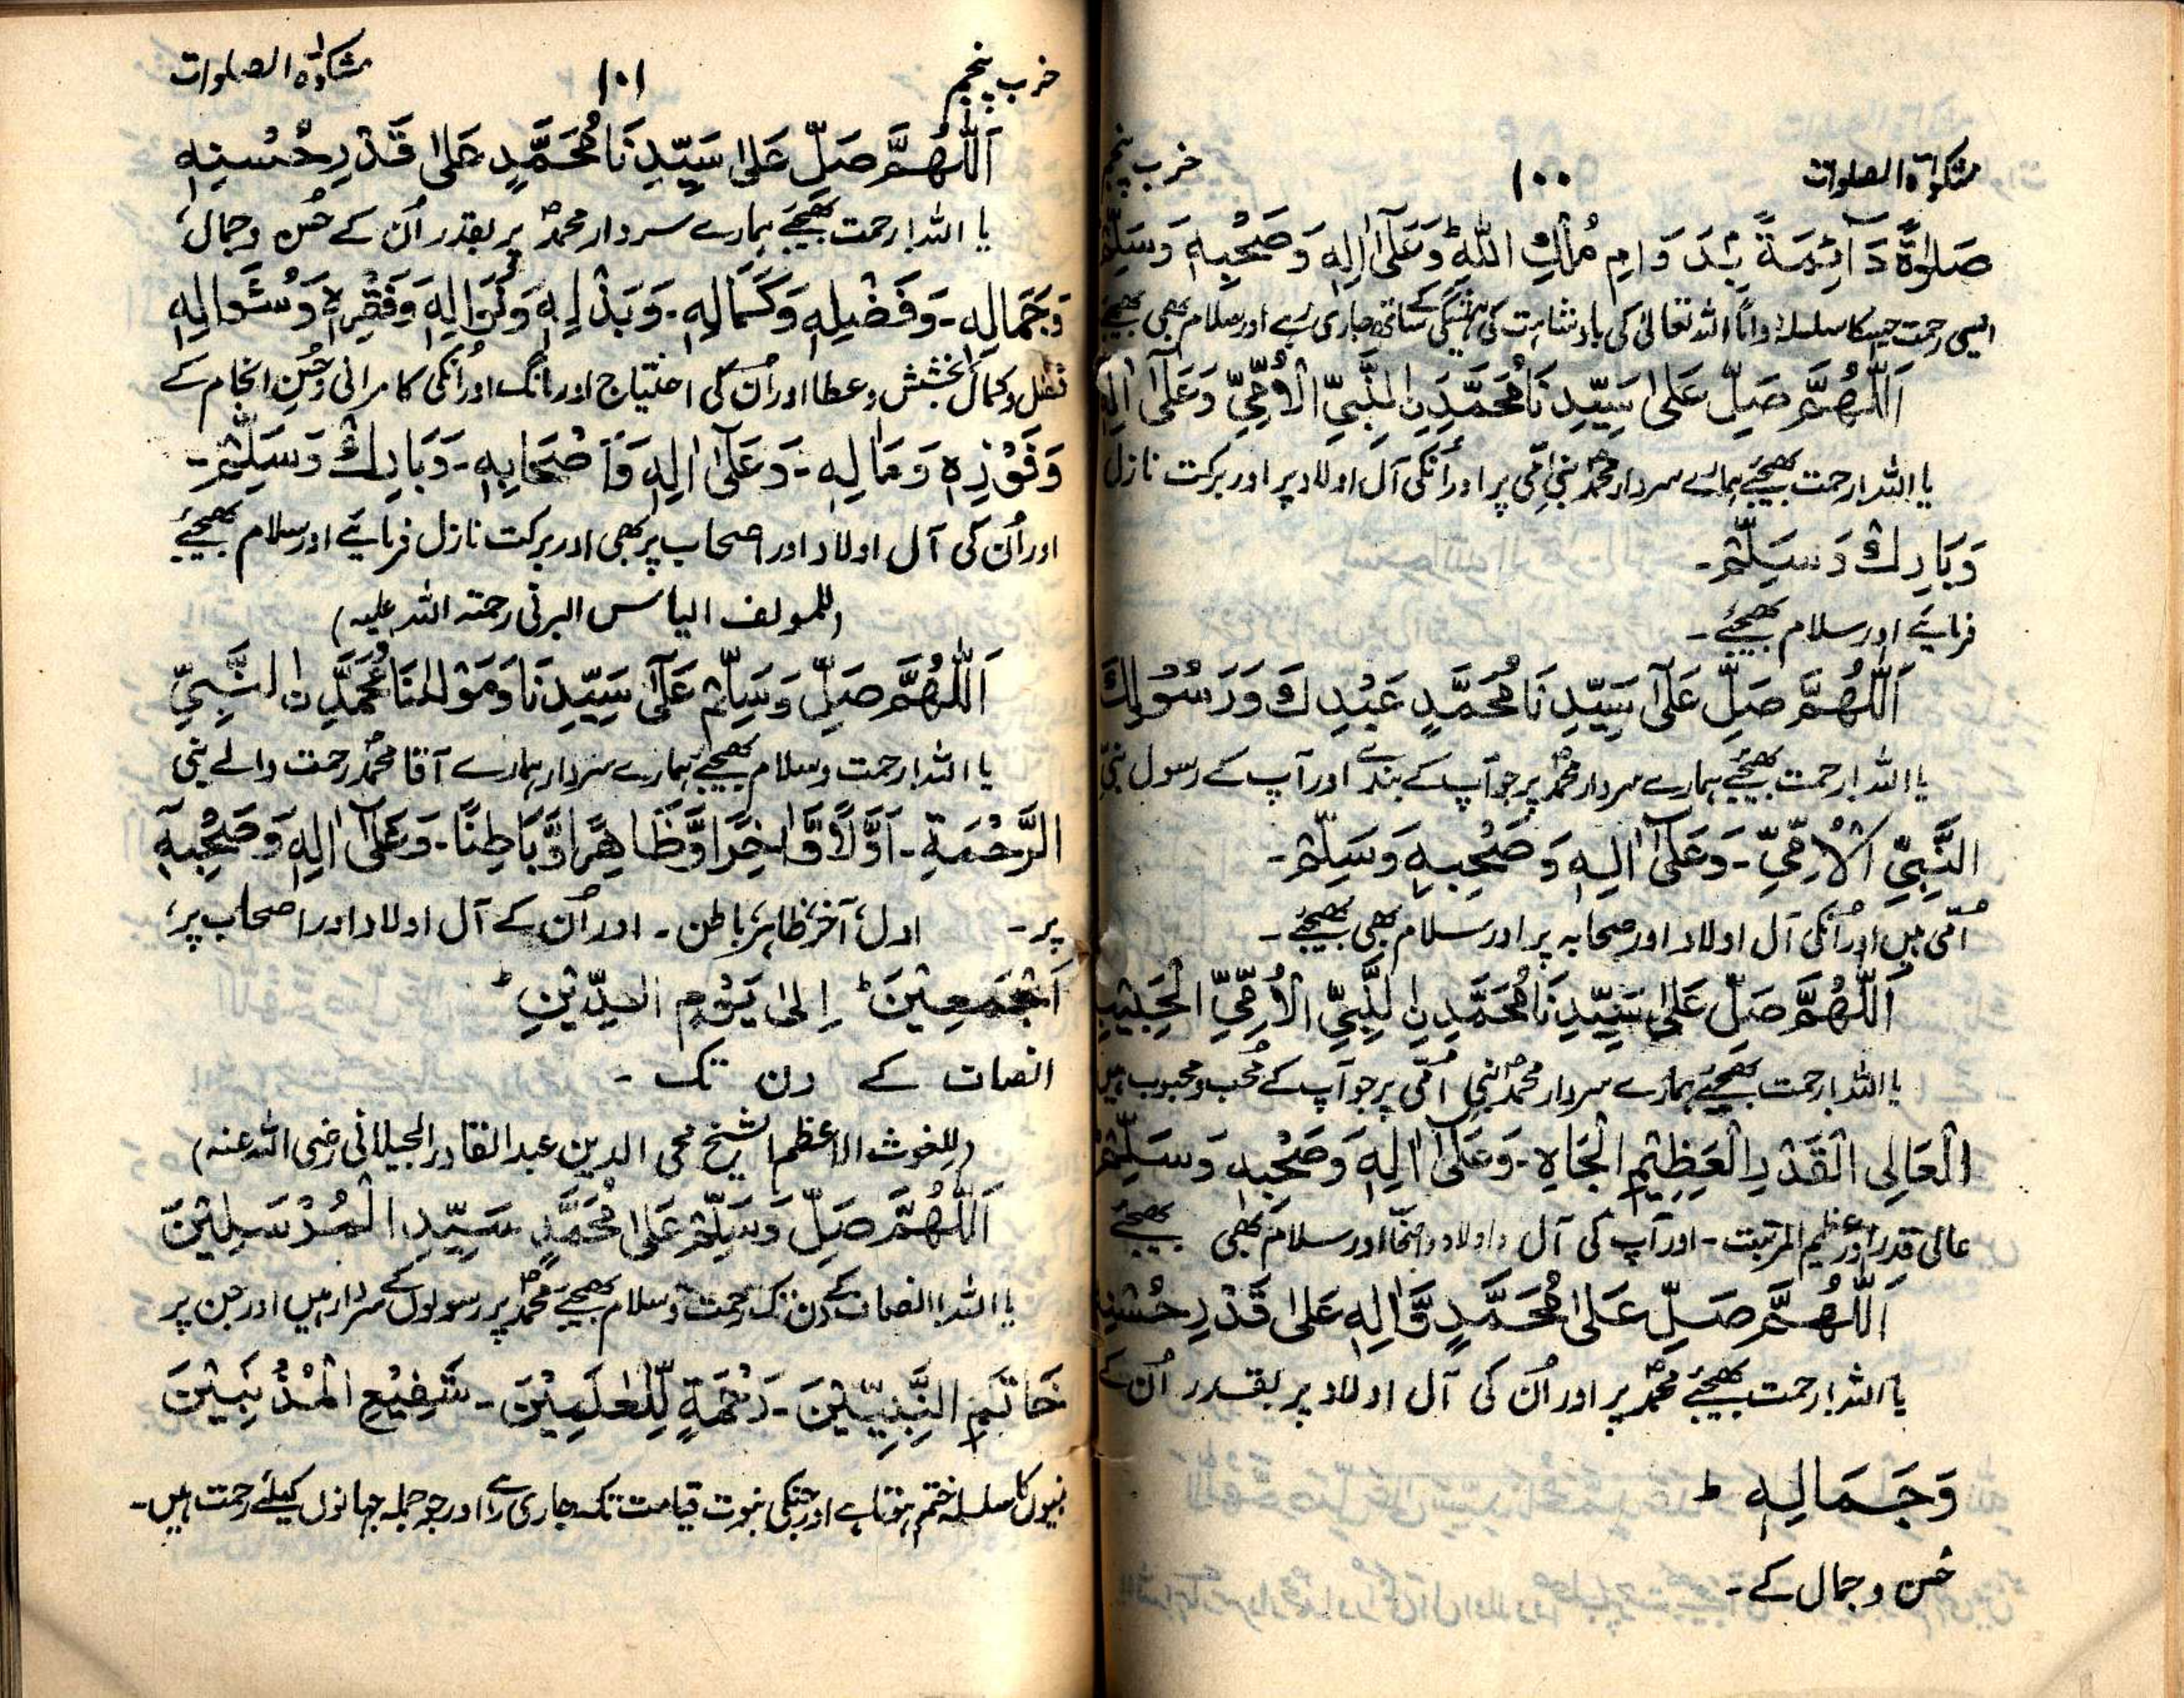 مشکوٰۃ الصلوات ۱۰۰ حزب پنجم
صَلٰوةً دَآئِمَةً بِۢدَوَامِ مُلْكِ اللّٰهِ ؕ وَعَلٰٓى اٰلِهٖ وَصَحْبِهٖ وَسَلِّمْ
ایسی رحمت جسکا سلسلہ دائماً اللہ تعالیٰ کی بادشاہت کی ہمیشگی کے ساتھ جاری رہے اور سلام بھی بھیجئے
اَللّٰهُمَّ صَلِّ عَلٰى سَيِّدِنَا مُحَمَّدِنِ النَّبِيِّ الْاُمِّيِّ وَعَلٰٓى اٰلِهٖ
یا اللہ! رحمت بھیجئے ہمارے سردار محمدؐ نبی اُمّی پر اور اُنکی آل اولاد پر اور برکت نازل
وَبَارِكْ وَسَلِّمْ۔
فرمائیے اور سلام بھیجئے۔
اَللّٰهُمَّ صَلِّ عَلٰى سَيِّدِنَا مُحَمَّدٍ عَبْدِكَ وَرَسُوْلِكَ
یا اللہ! رحمت بھیجئے ہمارے سردار محمدؐ پر جو آپ کے بندے اور آپ کے رسول نبیّ
النَّبِيِّ الْاُمِّيِّ۔ وَعَلٰٓى اٰلِهٖ وَصَحْبِهٖ وَسَلِّمْ۔
اُمّی ہیں اور اُنکی آل اولاد اور صحابہ پر اور سلام بھی بھیجئے۔
اَللّٰهُمَّ صَلِّ عَلٰى سَيِّدِنَا مُحَمَّدِنِ النَّبِيِّ الْاُمِّيِّ الْحَبِيْبِ
یا اللہ! رحمت بھیجئے ہمارے سردار محمدؐ نبی اُمّی پر جو آپ کے محُب و محبوب ہیں
الْعَالِى الْقَدْرِ الْعَظِيْمِ الْجَاهِ۔ وَعَلٰٓى اٰلِهٖ وَصَحْبِهٖ وَسَلِّمْ
عالی قدر اور عظیم المرتبت۔ اور آپ کی آل و اولاد و اصحاب اور سلام بھی بھیجئے
اَللّٰهُمَّ صَلِّ عَلٰى مُحَمَّدٍ وَّاٰلِهٖ عَلٰى قَدْرِ حُسْنِهٖ
یا اللہ! رحمت بھیجئے محمدؐ پر اور اُن کی آل اولاد پر بقدر اُن کے
وَجَمَالِهٖ ؕ
حُسن و جمال کے۔
حزب پنجم ۱۰۱ مشکوٰۃ الصلوات
اَللّٰهُمَّ صَلِّ عَلٰى سَيِّدِنَا مُحَمَّدٍ عَلٰى قَدْرِ حُسْنِهٖ
یا اللہ! رحمت بھیجئے ہمارے سردار محمدؐ پر بقدر اُن کے حُسن و جمال،
وَجَمَالِهٖ۔ وَفَضْلِهٖ وَكَمَالِهٖ۔ وَبَذْلِهٖ وَنَوَالِهٖ وَفَقْرِهٖ وَسُؤَالِهٖ
فضل و کمال، بخشش و عطا اور اُن کی احتیاج اور مانگ اور اُنکی کامرانی و حُسنِ انجام کے
وَفَوْزِهٖ وَمَاٰلِهٖ۔ وَعَلٰٓى اٰلِهٖ وَاَصْحَابِهٖ۔ وَبَارِكْ وَسَلِّمْ۔
اور اُن کی آل اولاد اور اصحاب پر بھی اور برکت نازل فرمائیے اور سلام بھیجئے
(للمولف الیاس البرنی رحمتہ اللہ علیہ)
اَللّٰهُمَّ صَلِّ وَسَلِّمْ عَلٰى سَيِّدِنَا وَمَوْلٰنَا مُحَمَّدِنِ النَّبِيِّ
یا اللہ! رحمت و سلام بھیجئے ہمارے سردار ہمارے آقا محمدؐ رحمت والے نبی
الرَّحْمَةِ۔ اَوَّلًا وَّاٰخِرًا وَّظَاهِرًا وَّبَاطِنًا۔ وَعَلٰٓى اٰلِهٖ وَصَحْبِهٖ
پر۔ اول، آخر، ظاہر، باطن۔ اور اُن کے آل اولاد اور اصحاب پر،
اَجْمَعِيْنَ ؕ اِلٰى يَوْمِ الدِّيْنِ ؕ
انصاف کے دن تک۔
(للغوث الاعظم الشیخ محی الدین عبدالقادر الجیلانی رضی اللہ عنہ)
اَللّٰهُمَّ صَلِّ وَسَلِّمْ عَلٰى مُحَمَّدٍ سَيِّدِ الْمُرْسَلِيْنَ
یا اللہ! انصاف کے دن تک رحمت و سلام بھیجئے محمدؐ پر رسولوں کے سردار ہیں اور جن پر
خَاتَمِ النَّبِيِّيْنَ۔ رَحْمَةٍ لِّلْعٰلَمِيْنَ۔ شَفِيْعِ الْمُذْنِبِيْنَ
نبیوں کا سلسلہ ختم ہوتا ہے اور جنکی نبوت قیامت تک جاری رہے اور جو جملہ جہانوں کیلئے رحمت ہیں۔